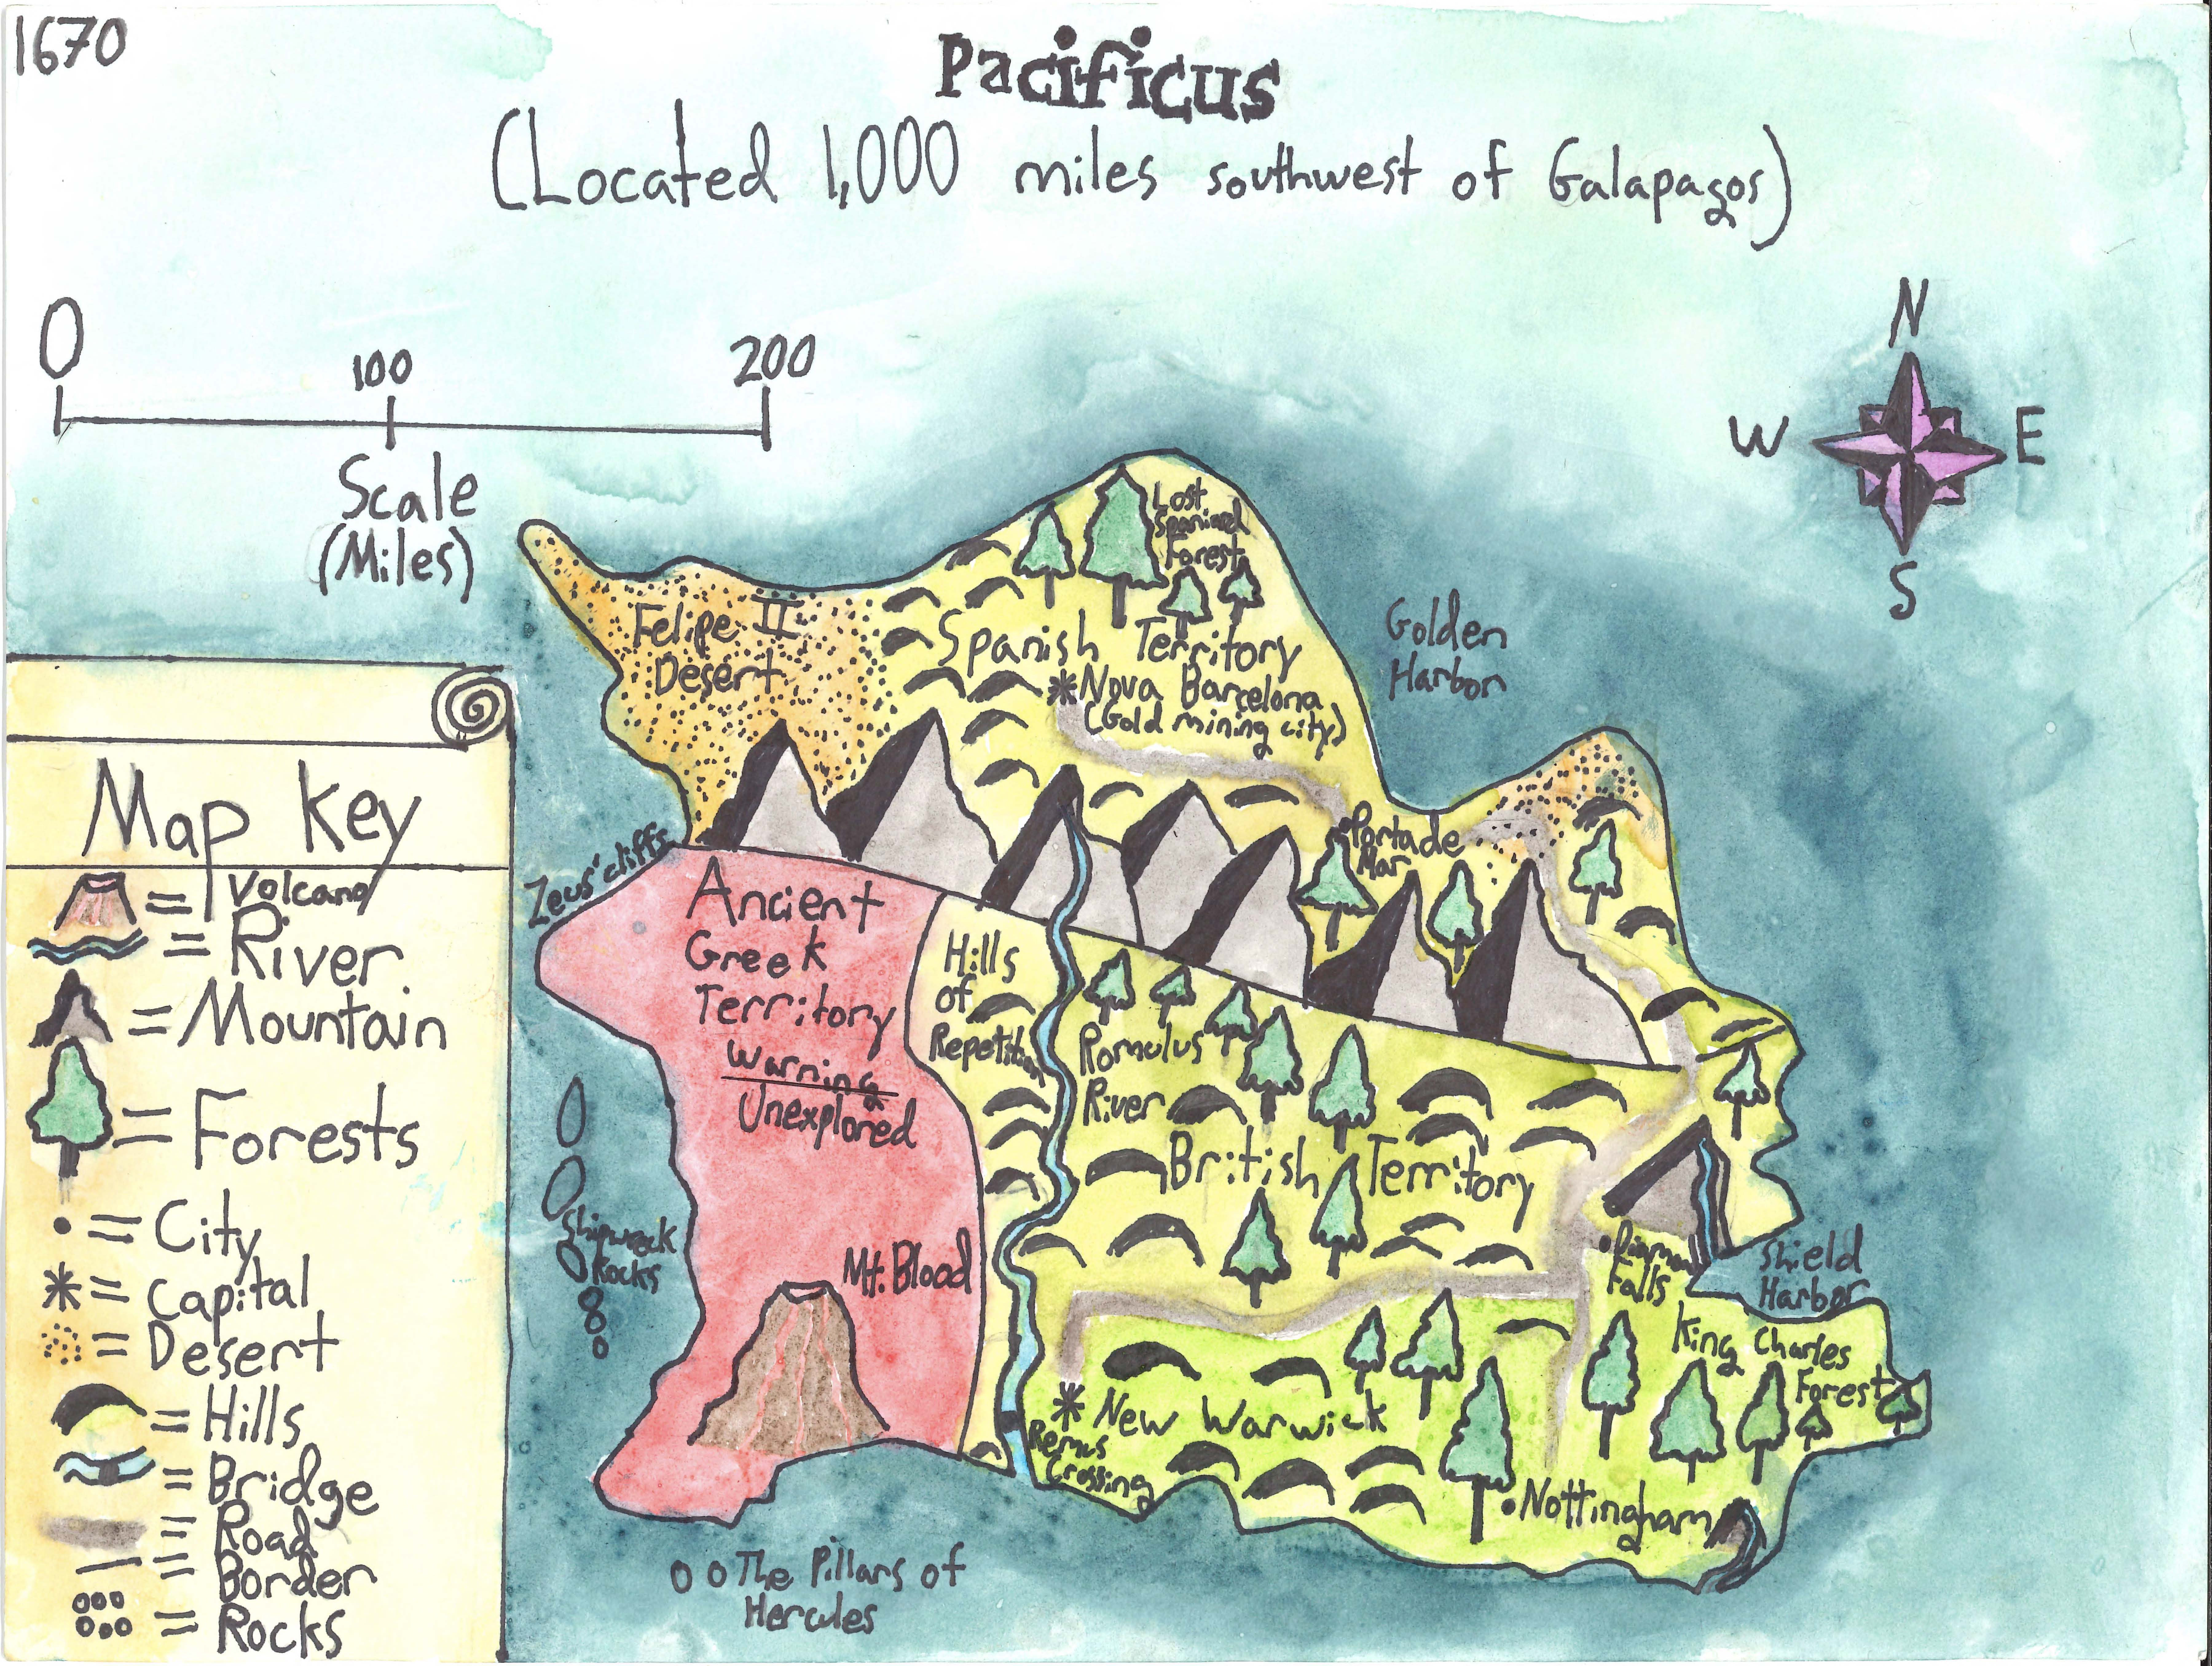 1670
Pacificus
(Located 1,000 miles southwest of Galapagos)
0
100
200
Scale
(Miles)
N
W
E
S
Lost
Spaniard
Forest
Felipe II
Desert
Spanish Territory
Nova Barcelona
(Gold mining city)
Golden
Harbor
Portade
Mar
Zeus' cliffs
Ancient
Greek
Territory
Warning
Unexplored
Hills
of
Repetition
Romulus
River
British Territory
Shipwreck
Rocks
Mt. Blood
Falls
Shield
Harbor
King Charles
Forest
New Warwick
Remus
Crossing
Nottingham
The Pillars of
Hercules
Map Key
= Volcano
= River
= Mountain
= Forests
= City
= Capital
= Desert
= Hills
= Bridge
= Road
= Border
= Rocks